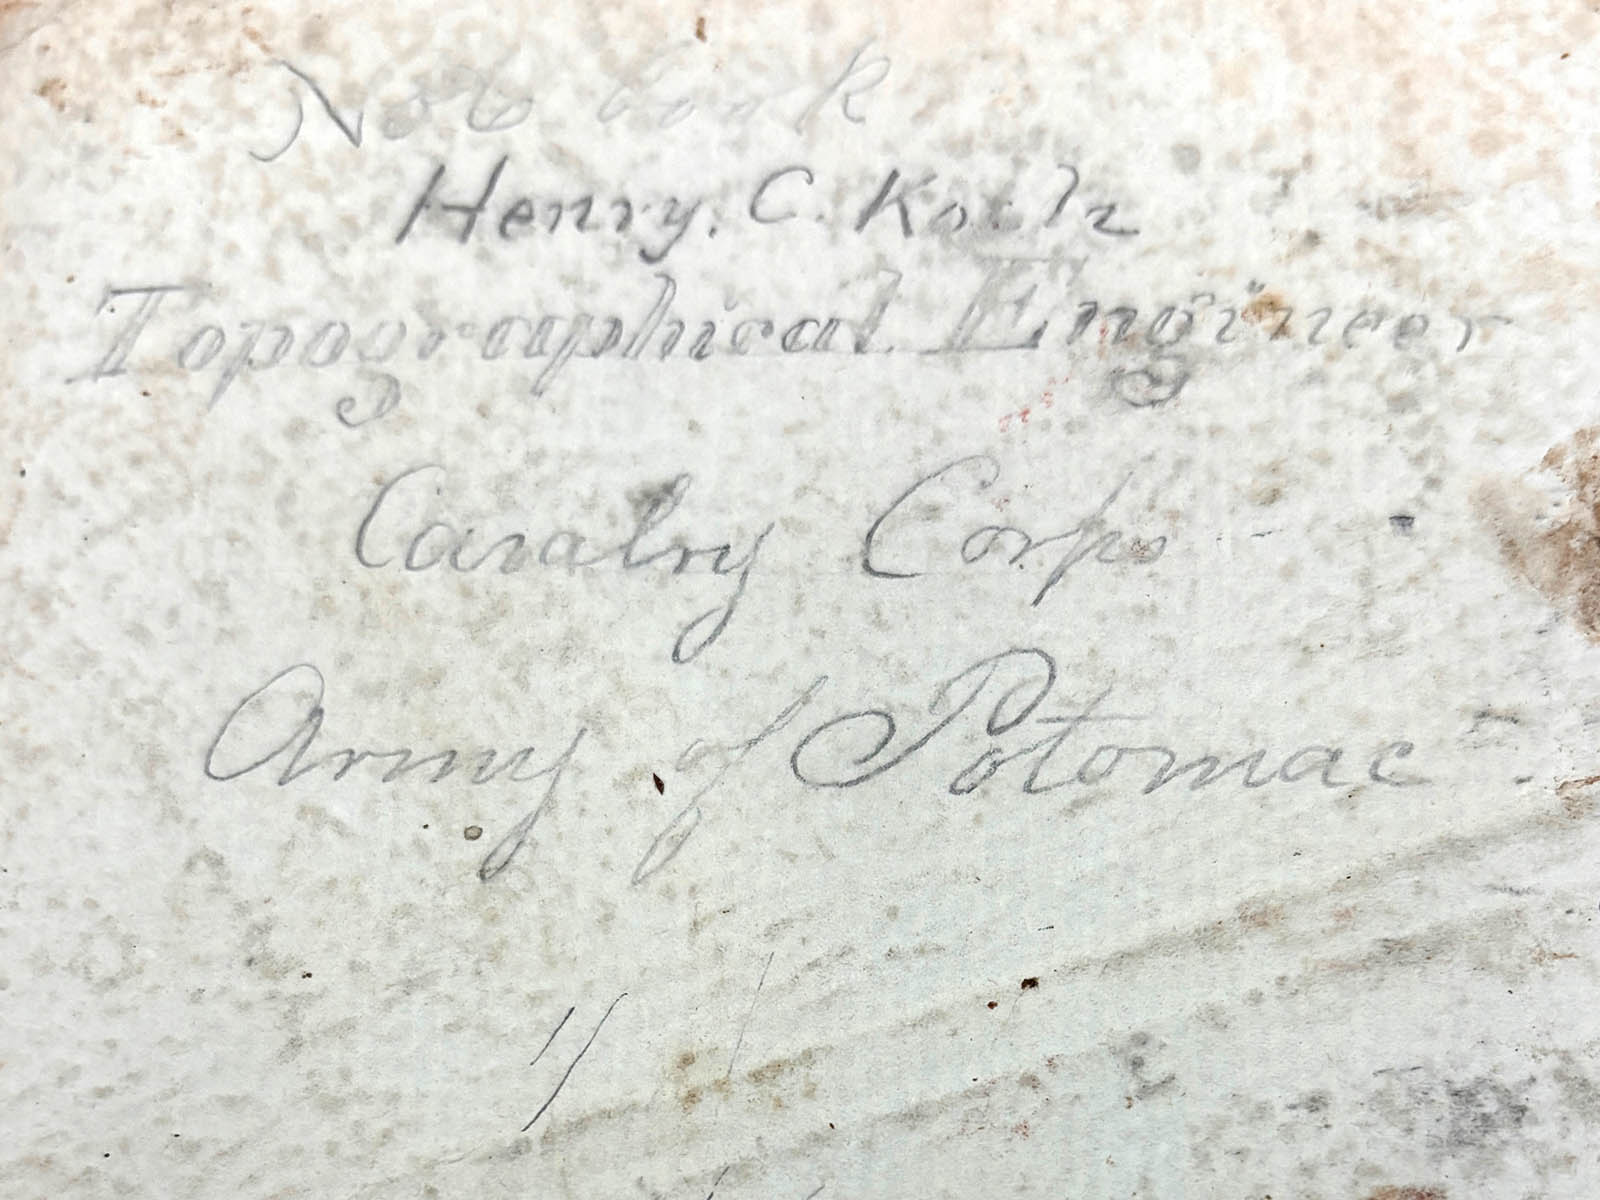 Note book
Henry. C.
Topographical Engineer
Cavalry Corps
Army of Potomac